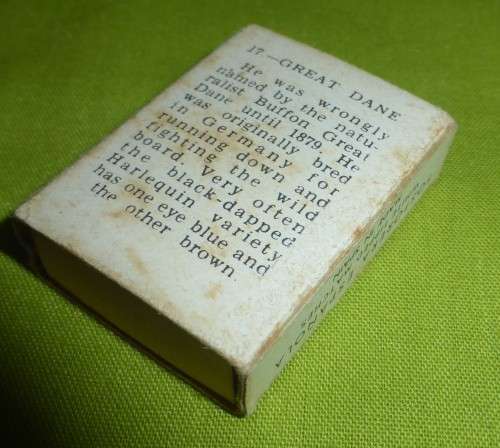 17.—GREAT DANE
He was wrongly
named by the natu-
ralist Buffon Great
Dane until 1879. He
was originally bred
in Germany for
running down and
fighting the wild
board. Very often
the black-dapped
Harlequin variety
has one eye blue and
the other brown.